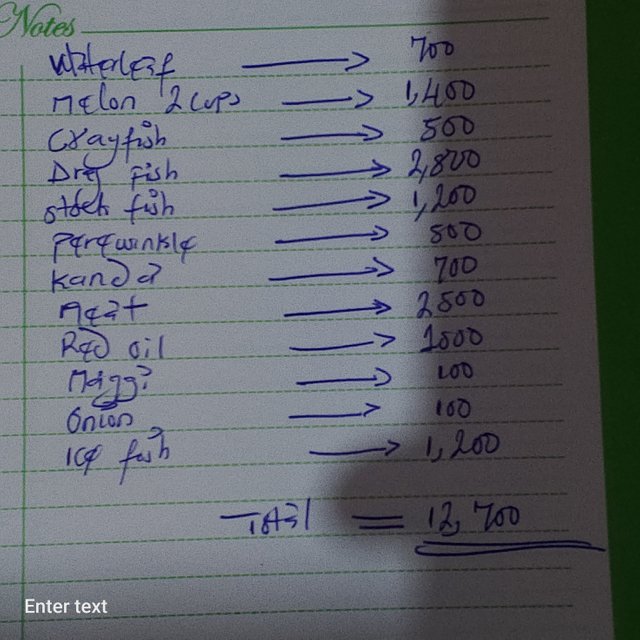 Notes
Waterleaf → 700
Melon 2 cups → 1,400
Crayfish → 500
Dry fish → 2,800
stock fish → 1,200
perewinkle → 800
kanda → 700
Meat → 2500
Red oil → 1000
Maggi → 100
Onion → 100
Ice fish → 1,200
Total = 12,700
Enter text